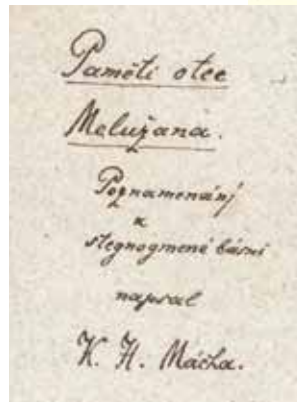 Paměti otce
Melužana.
Poznamenánj
k
stegnogmené básni
napsal
K. H. Mácha.